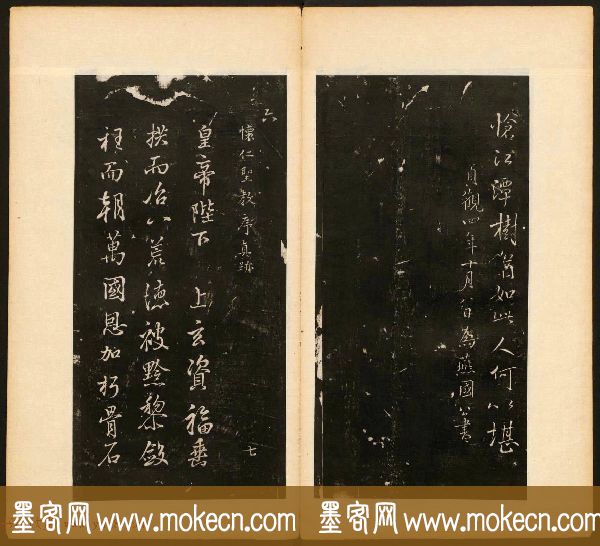 愴江潭樹猶如此人何以堪
貞觀四年十月八日為燕國公書
六
懷仁聖教序真跡
皇帝陛下上玄資福垂
拱而治八荒德被黔黎斂
衽而朝萬國恩加朽骨石
七
墨客网 www.mokecn.com 墨客网 www.mokecn.com